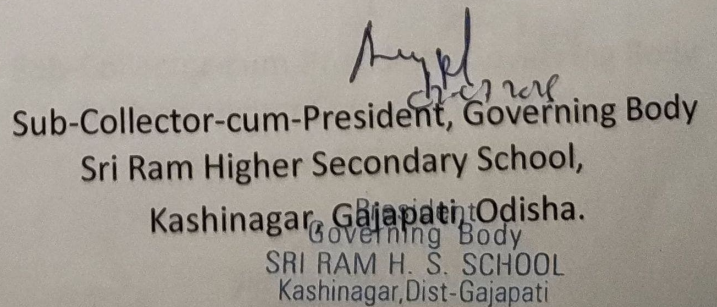 Sub-Collector-cum-President, Governing Body
Sri Ram Higher Secondary School,
Kashinagar, Gajapati, Odisha.
President
Governing Body
SRI RAM H. S. SCHOOL
Kashinagar,Dist-Gajapati